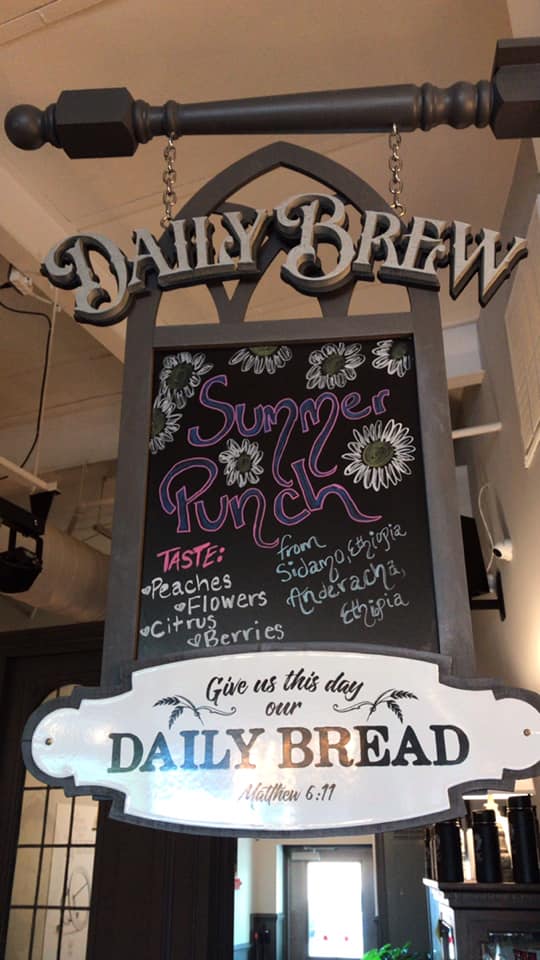 DAILY BREW
Summer
Punch
TASTE:
Peaches
Flowers
Citrus
Berries
from
Sidamo, Ethiopia
Anderacha,
Ethipia
Give us this day
our
DAILY BREAD
Matthew 6:11